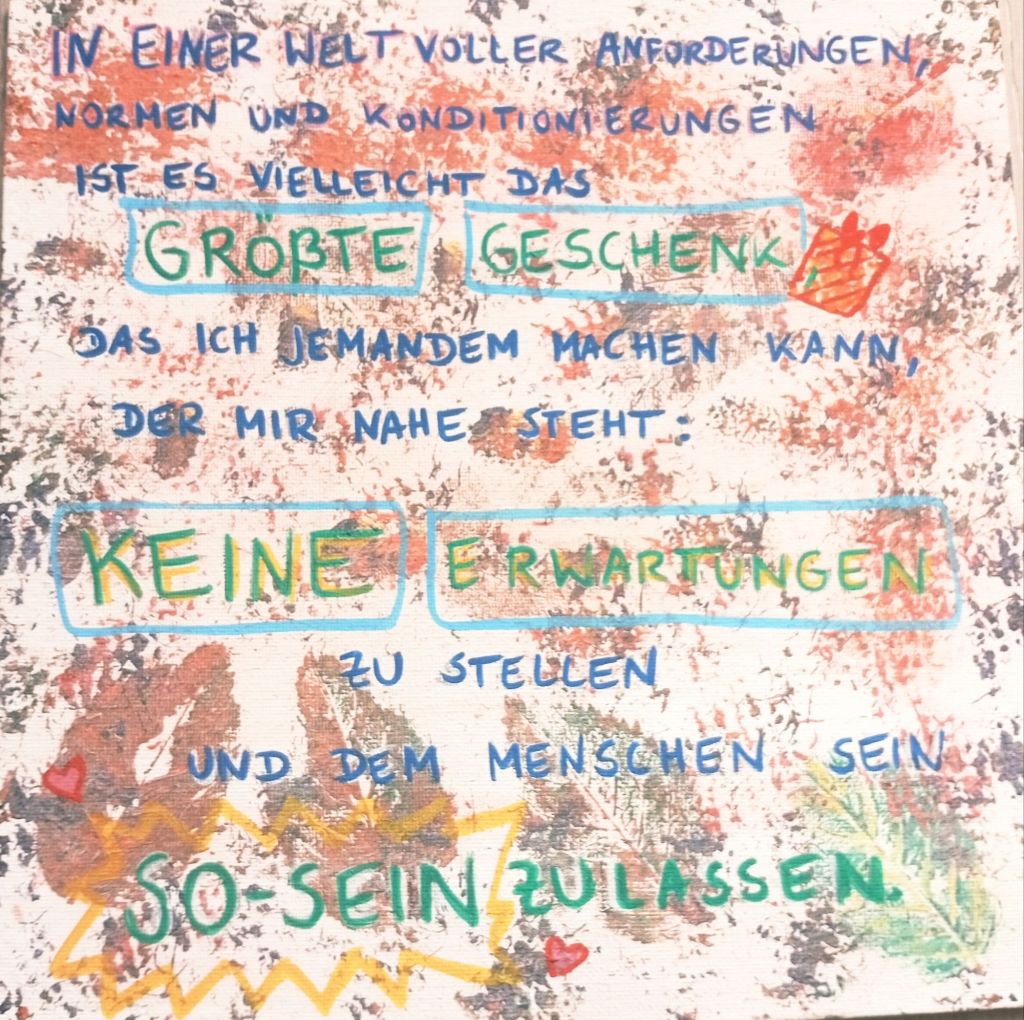 IN EINER WELT VOLLER ANFORDERUNGEN,
NORMEN UND KONDITIONIERUNGEN
IST ES VIELLEICHT DAS
GRÖßTE GESCHENK,
DAS ICH JEMANDEM MACHEN KANN,
DER MIR NAHE STEHT:
KEINE ERWARTUNGEN
ZU STELLEN
UND DEM MENSCHEN SEIN
SO-SEIN ZU LASSEN.